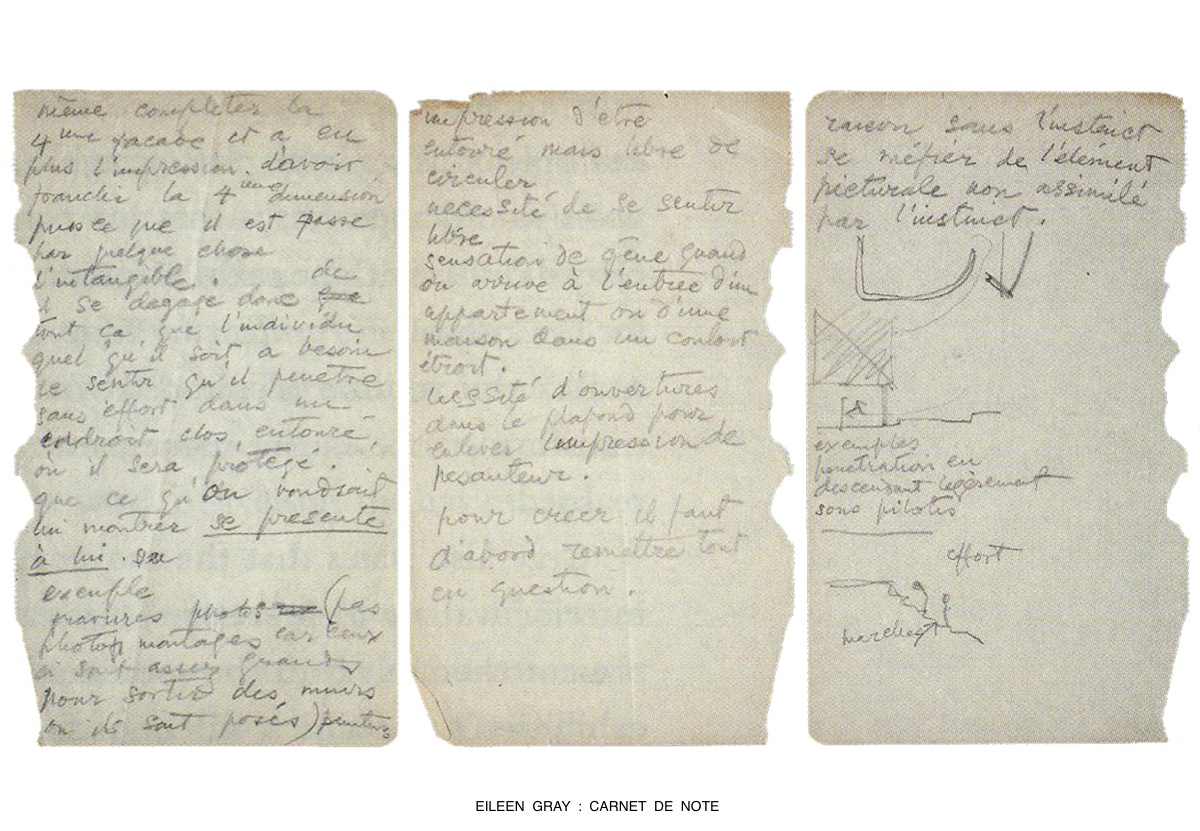 même completer la
4ème façade et a en
plus l'impression d'avoir
franchi la 4ème dimension
puisce que il est passé
par quelque chose
l'intangible. de
il se dégage donc que
tout ça que l'individu
quel qu'il soit a besoin
de sentir qu'il penetre
sans effort dans un
endroit clos, entouré,
où il sera protégé.
que ce qu'on voudrait
lui montrer se presente
à lui
exemple
gravures photos (pas
photos montages car ceux
ci sont assez grands
pour sortir des murs
où ils sont posés) peintures
impression d'être
entouré mais libre de
circuler
necessité de se sentir
libre
sensation de gêne quand
on arrive à l'entrée d'un
appartement ou d'une
maison dans un couloir
étroit.
cessité d'ouvertures
dans le plafond pour
enlever l'impression de
pesanteur.
pour creer il faut
d'abord remettre tout
en question.
raison sans l'instinct
se méfier de l'élément
picturale non assimilé
par l'instinct.
exemples
penetration en
descendant legèrement
sous pilotis
effort
EILEEN GRAY : CARNET DE NOTE